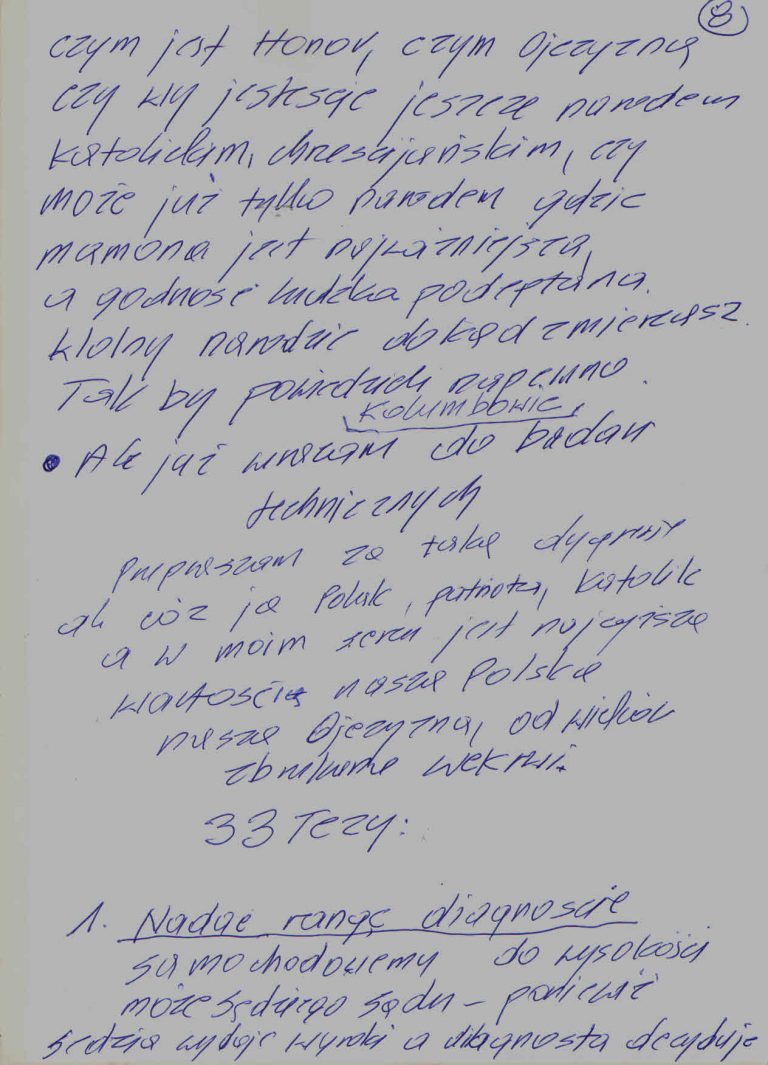 8
czym jest Honor, czym Ojczyzna
czy wy jesteście jeszcze narodem
katolickim, chrześcijańskim, czy
może już tylko narodem gdzie
mamona jest najważniejsza,
a godność ludzka podeptana.
Wolny narodzie dokąd zmierzasz.
Tak by powiedzieli zapewne
Kolumbowie.
• Ale już wracam do badań
technicznych
Przepraszam za taką dygresję
ale cóż ja Polak, patriota, katolik
a w moim sercu jest najwyższą
wartością nasza Polska
nasza Ojczyzna, od wieków
zbrukana we krwi.
33 Tezy:
1. Nadać rangę diagnoście
samochodowemu do wysokości
może sędziego sądu – ponieważ
sędzia wydaje wyroki a diagnosta decyduje